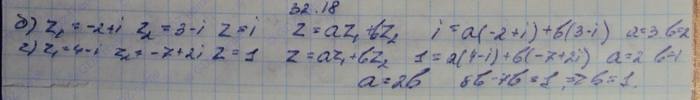 32.18
д) z₁=-2+i z₂=3-i z=i z=az₁+bz₂ i=a(-2+i)+b(3-i) a=3 b=2
г) z₁=4-i z₂=-7+2i z=1 z=az₁+bz₂ 1=a(4-i)+b(-7+2i) a=2 b=1
a=2b 8b-7b=1 => b=1.